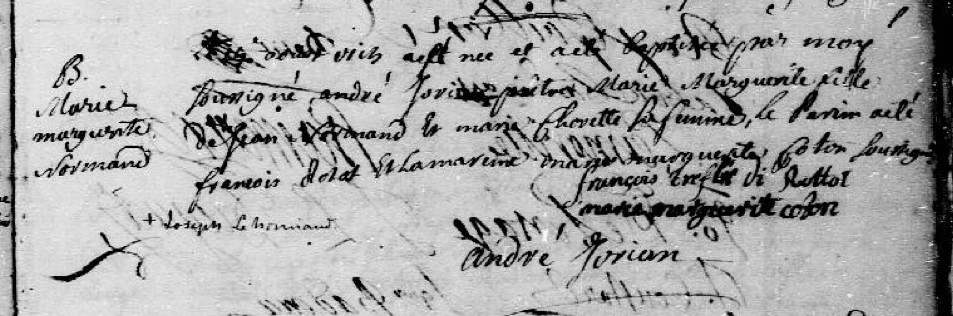 B.
Marie
marguerite
Normand
aout est née et a été baptisée par moy
soussigné andré Jorian prêtre Marie Marguerite fille
de Jean Normand et marie Chorette sa femme, le Parrin a été
francois et la mareine marie marguerite Coton
françois
marie marguerite coton
+ Joseph le normand
andré Jorian